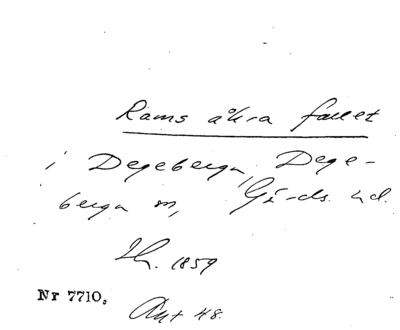 Ramsåkra fallet
i Degeberga, Dege-
berga sn, Gärds hd.
Lh. 1859
Nr 7710.
Ant 48.